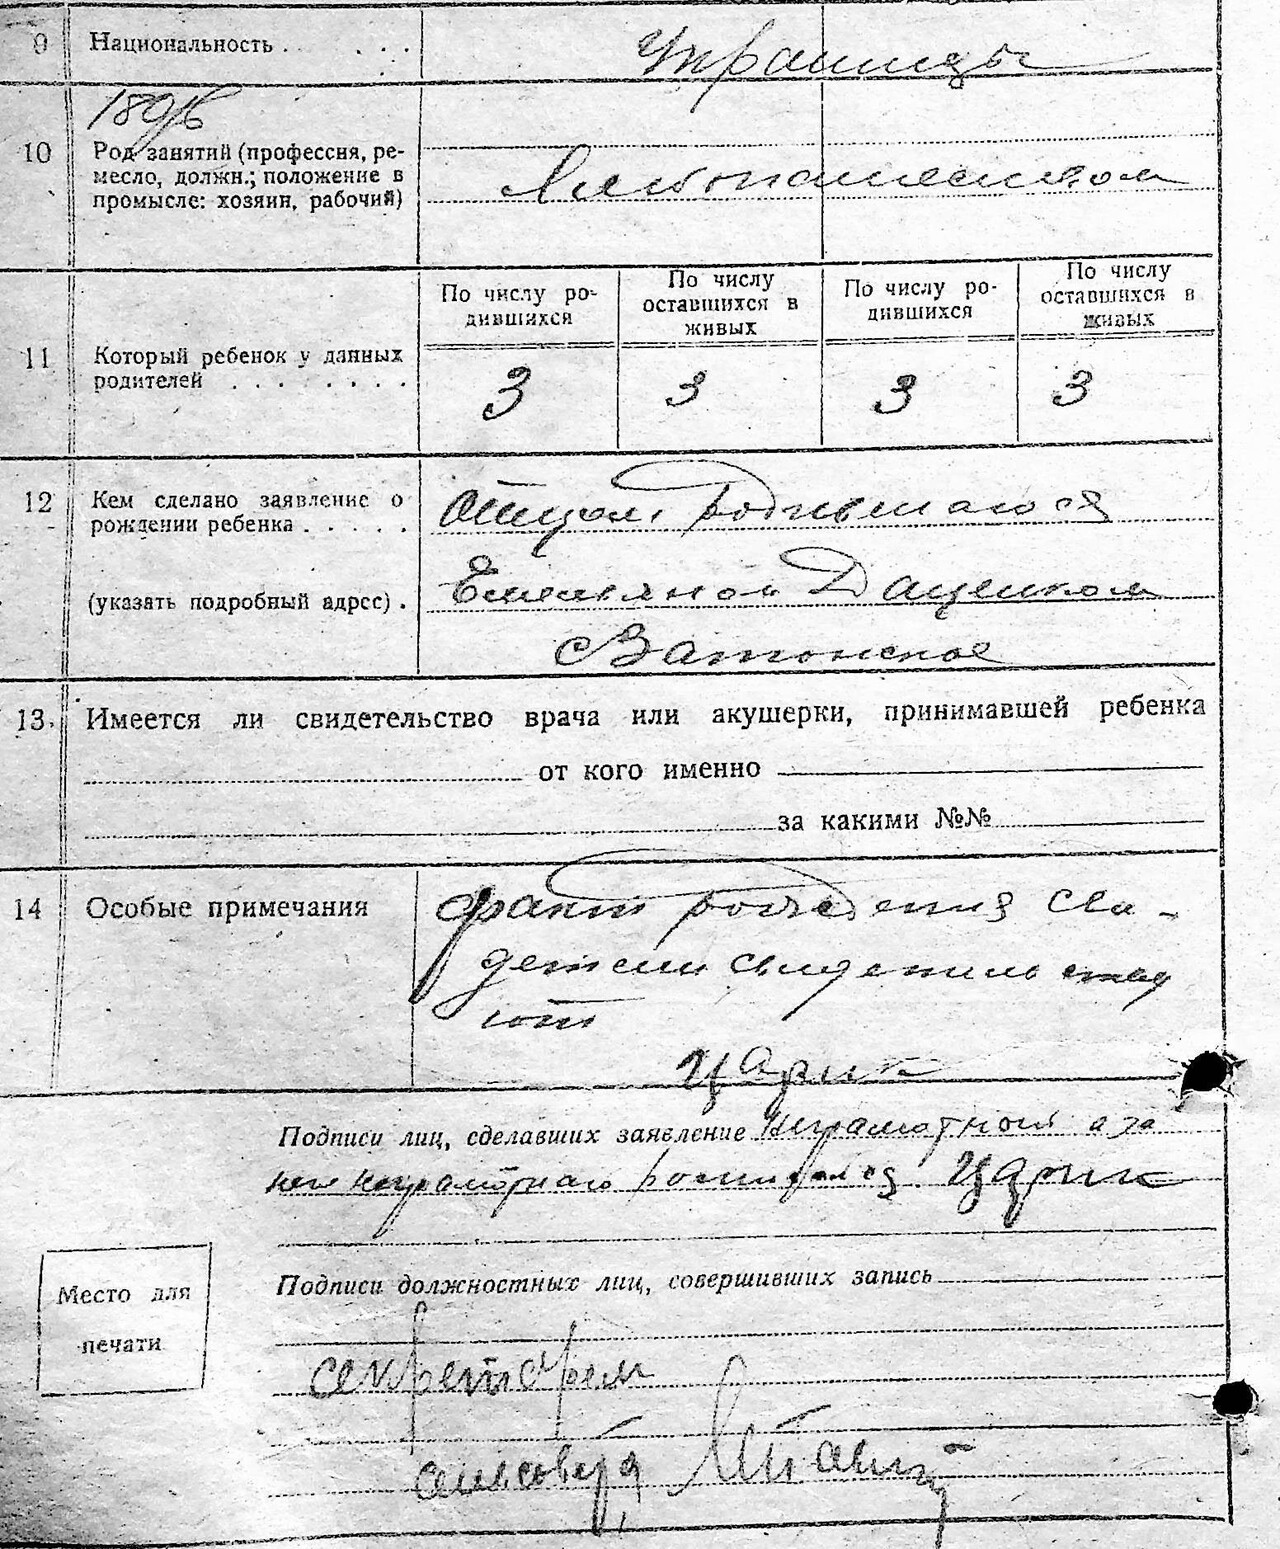 9 Национальность . . . . . Украинцы
189
10 Род занятий (профессия, ре-
месло, должн.; положение в
промысле: хозяин, рабочий)
По числу ро-
дившихся
По числу
оставшихся в
живых
По числу ро-
дившихся
По числу
оставшихся в
живых
11 Который ребенок у данных
родителей . . . . . . . .
3 3 3 3
12 Кем сделано заявление о
рождении ребенка . . . . .
(указать подробный адрес) .
Отцом родившагося
Емельяном Даценком
Ватонское
13. Имеется ли свидетельство врача или акушерки, принимавшей ребенка
от кого именно
за какими №№
14 Особые примечания
факт рождения сви-
детели свидетельствуу
ют
Царик
Подписи лиц, сделавших заявление неграмотный а за
него неграмотнаго росписался Царик
Место для
печати
Подписи должностных лиц, совершивших запись
секретарем
сельсовета